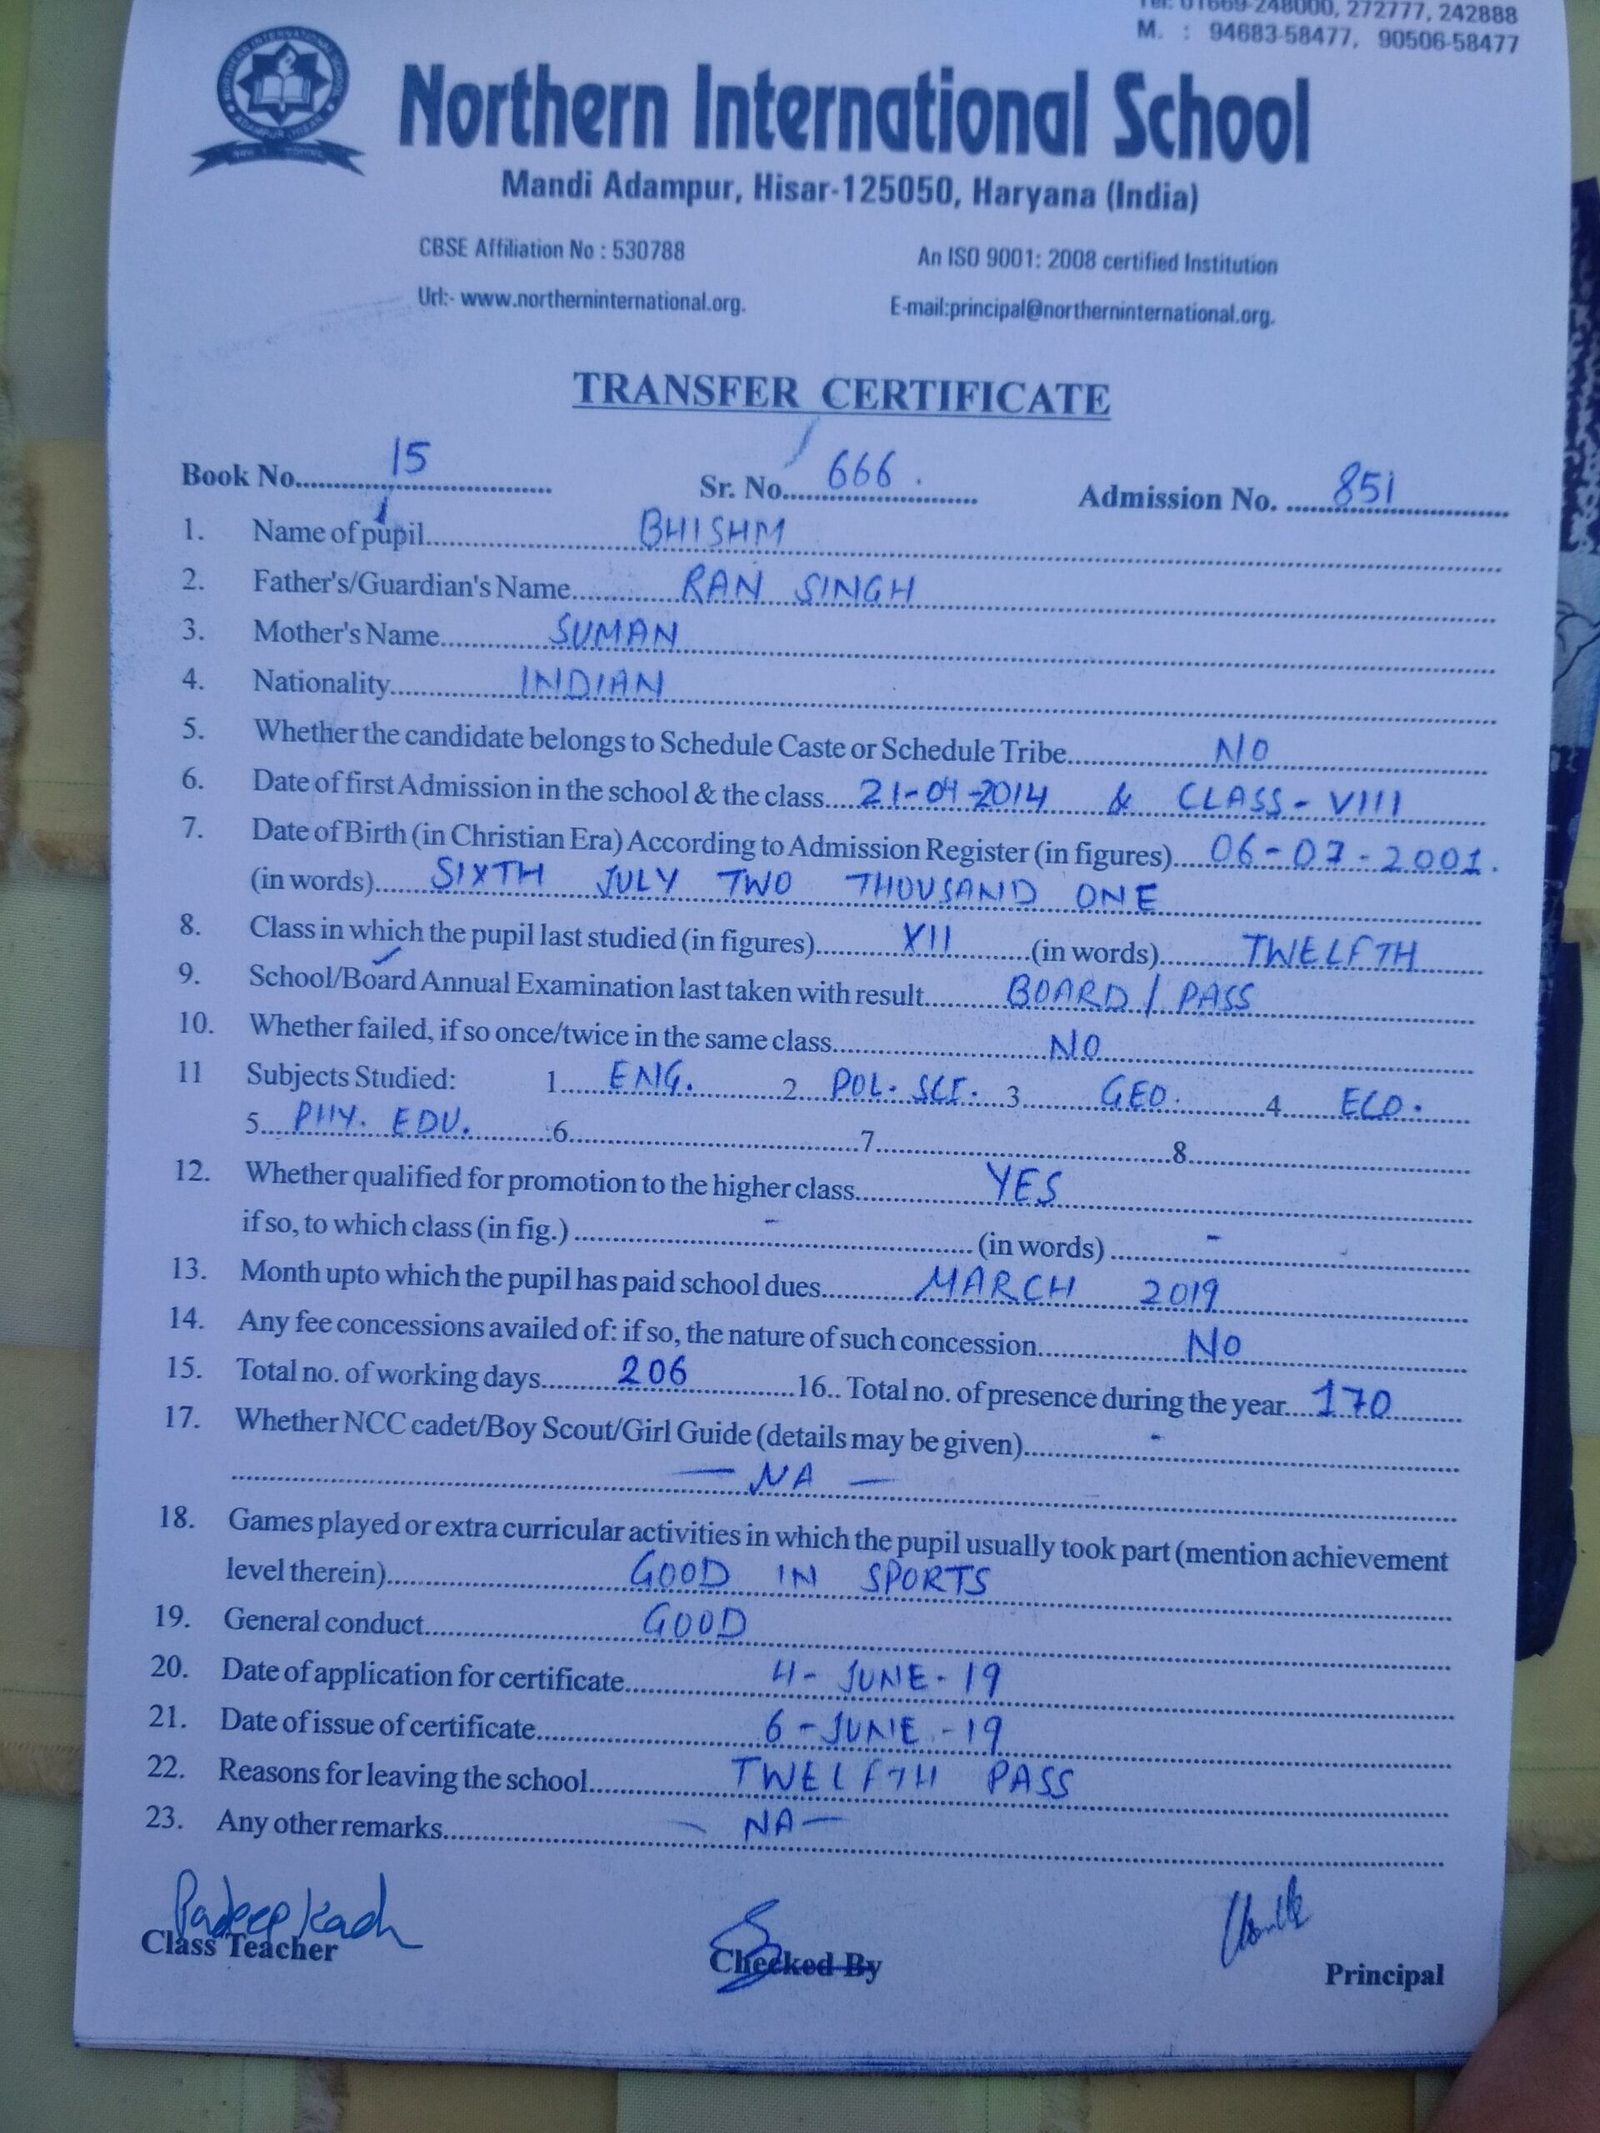 Tel: 01669-248000, 272777, 242888
M. : 94683-58477, 90506-58477
NORTHERN INTERNATIONAL SCHOOL
ADAMPUR (HISAR)
Northern International School
Mandi Adampur, Hisar-125050, Haryana (India)
CBSE Affiliation No : 530788 An ISO 9001: 2008 certified Institution
Url:- www.northerninternational.org. E-mail:principal@northerninternational.org.
TRANSFER CERTIFICATE
Book No. 15 Sr. No. 666. Admission No. 851
1. Name of pupil BHISHM
2. Father's/Guardian's Name RAN SINGH
3. Mother's Name SUMAN
4. Nationality INDIAN
5. Whether the candidate belongs to Schedule Caste or Schedule Tribe NO
6. Date of first Admission in the school & the class 21-04-2014 & CLASS-VIII
7. Date of Birth (in Christian Era) According to Admission Register (in figures) 06-07-2001.
(in words) SIXTH JULY TWO THOUSAND ONE
8. Class in which the pupil last studied (in figures) XII (in words) TWELFTH
9. School/Board Annual Examination last taken with result BOARD/PASS
10. Whether failed, if so once/twice in the same class NO
11 Subjects Studied: 1 ENG. 2 POL. SCI. 3 GEO. 4 ECO.
5 PHY. EDU. 6 7 8
12. Whether qualified for promotion to the higher class YES
if so, to which class (in fig.) - (in words) -
13. Month upto which the pupil has paid school dues MARCH 2019
14. Any fee concessions availed of: if so, the nature of such concession NO
15. Total no. of working days 206 16.. Total no. of presence during the year 170
17. Whether NCC cadet/Boy Scout/Girl Guide (details may be given) -
— NA —
18. Games played or extra curricular activities in which the pupil usually took part (mention achievement
level therein) GOOD IN SPORTS
19. General conduct GOOD
20. Date of application for certificate 4-JUNE-19
21. Date of issue of certificate 6-JUNE-19
22. Reasons for leaving the school TWELFTH PASS
23. Any other remarks — NA —
Class Teacher Checked By Principal